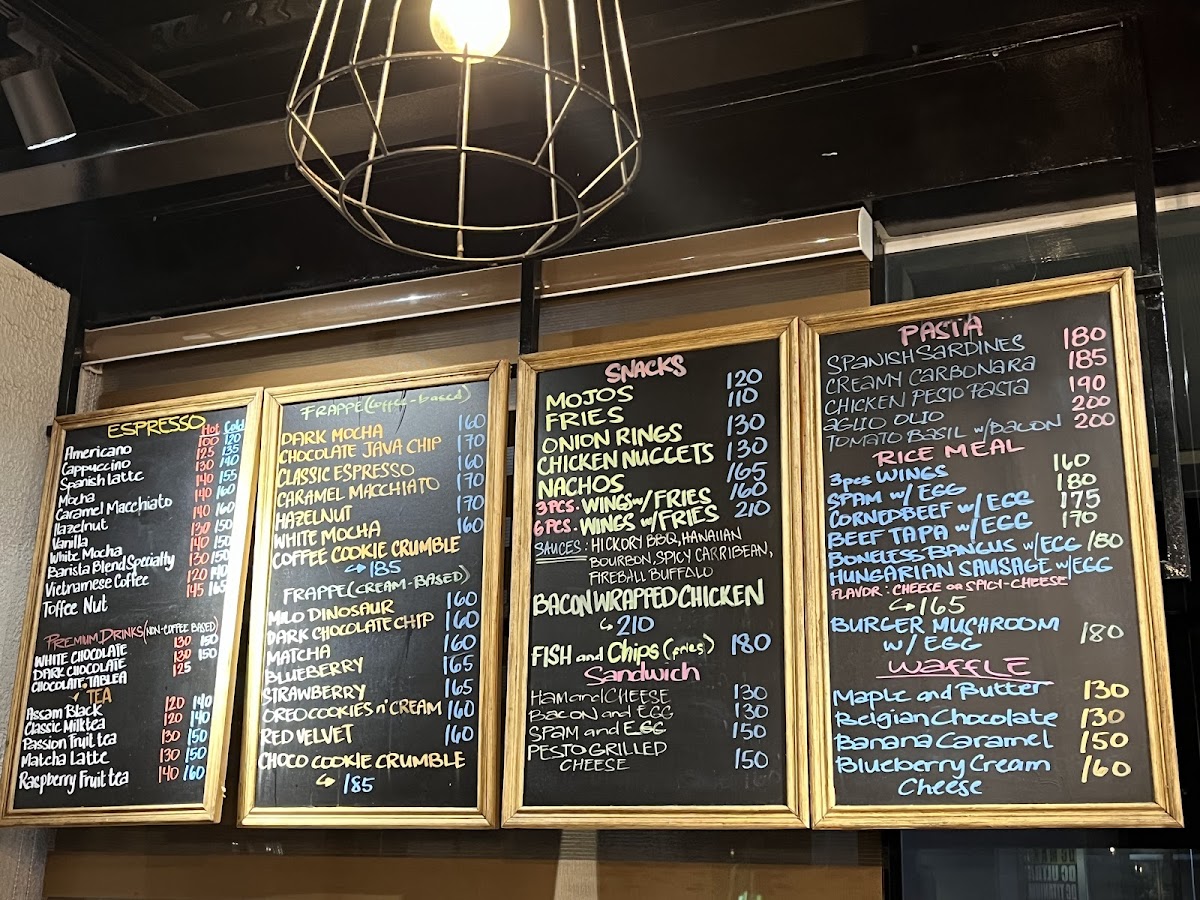 ESPRESSO Hot Cold
Americano 100 120
Cappuccino 125 135
Spanish Latte 130 140
Mocha 140 155
Caramel Macchiato 140 160
Hazelnut 140 160
Vanilla 130 150
White Mocha 140 150
Barista Blend Specialty 130 150
Vietnamese Coffee 120 140
Toffee Nut 145 165
PREMIUM DRINKS (NON-COFFEE BASED)
WHITE CHOCOLATE 130 150
DARK CHOCOLATE 130 150
CHOCOLATE TABLEA 125
TEA
Assam Black 120 140
Classic Milktea 120 140
Passion Fruit tea 130 150
Matcha Latte 130 150
Raspberry Fruit tea 140 160
FRAPPE (Coffee-based)
DARK MOCHA 160
CHOCOLATE JAVA CHIP 170
CLASSIC ESPRESSO 160
CARAMEL MACCHIATO 170
HAZELNUT 170
WHITE MOCHA 160
COFFEE COOKIE CRUMBLE
↳ 185
FRAPPE (CREAM-BASED)
MILO DINOSAUR 160
DARK CHOCOLATE CHIP 160
MATCHA 160
BLUEBERRY 165
STRAWBERRY 165
OREO COOKIES n' CREAM 160
RED VELVET 160
CHOCO COOKIE CRUMBLE
↳ 185
SNACKS
MOJOS 120
FRIES 110
ONION RINGS 130
CHICKEN NUGGETS 130
NACHOS 165
3 PCS. WINGS w/ FRIES 160
6 PCS. WINGS w/ FRIES 210
SAUCES: HICKORY BBQ, HANAIIAN
BOURBON, SPICY CARRIBEAN,
FIREBALL BUFFALO
BACON WRAPPED CHICKEN
↳ 210
FISH and Chips (fries) 180
Sandwich
HAM and CHEESE 130
BACON and EGG 130
SPAM and EGG 150
PESTO GRILLED
CHEESE 150
PASTA
SPANISH SARDINES 180
CREAMY CARBONARA 185
CHICKEN PESTO PASTA 190
AGLIO OLIO 200
TOMATO BASIL w/ BACON 200
RICE MEAL
3pcs WINGS 160
SPAM w/ EGG 180
CORNED BEEF w/ EGG 175
BEEF TAPA w/ EGG 170
BONELESS BANGUS w/ EGG 180
HUNGARIAN SAUSAGE w/ EGG
FLAVOR: CHEESE OR SPICY-CHEESE
↳ 165
BURGER MUSHROOM
W/ EGG 180
WAFFLE
Maple and Butter 130
Belgian Chocolate 130
Banana Caramel 150
Blueberry Cream 160
Cheese